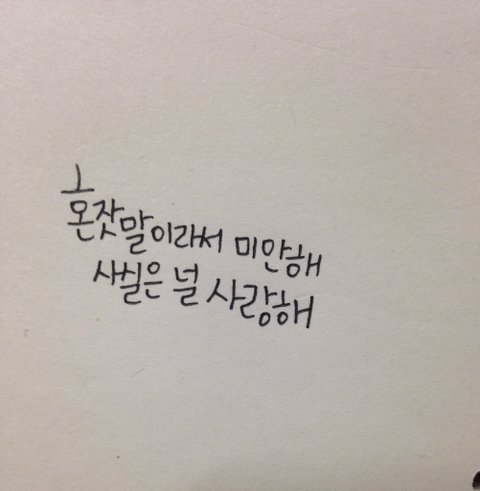 혼잣말이라서 미안해
사실은 널 사랑해